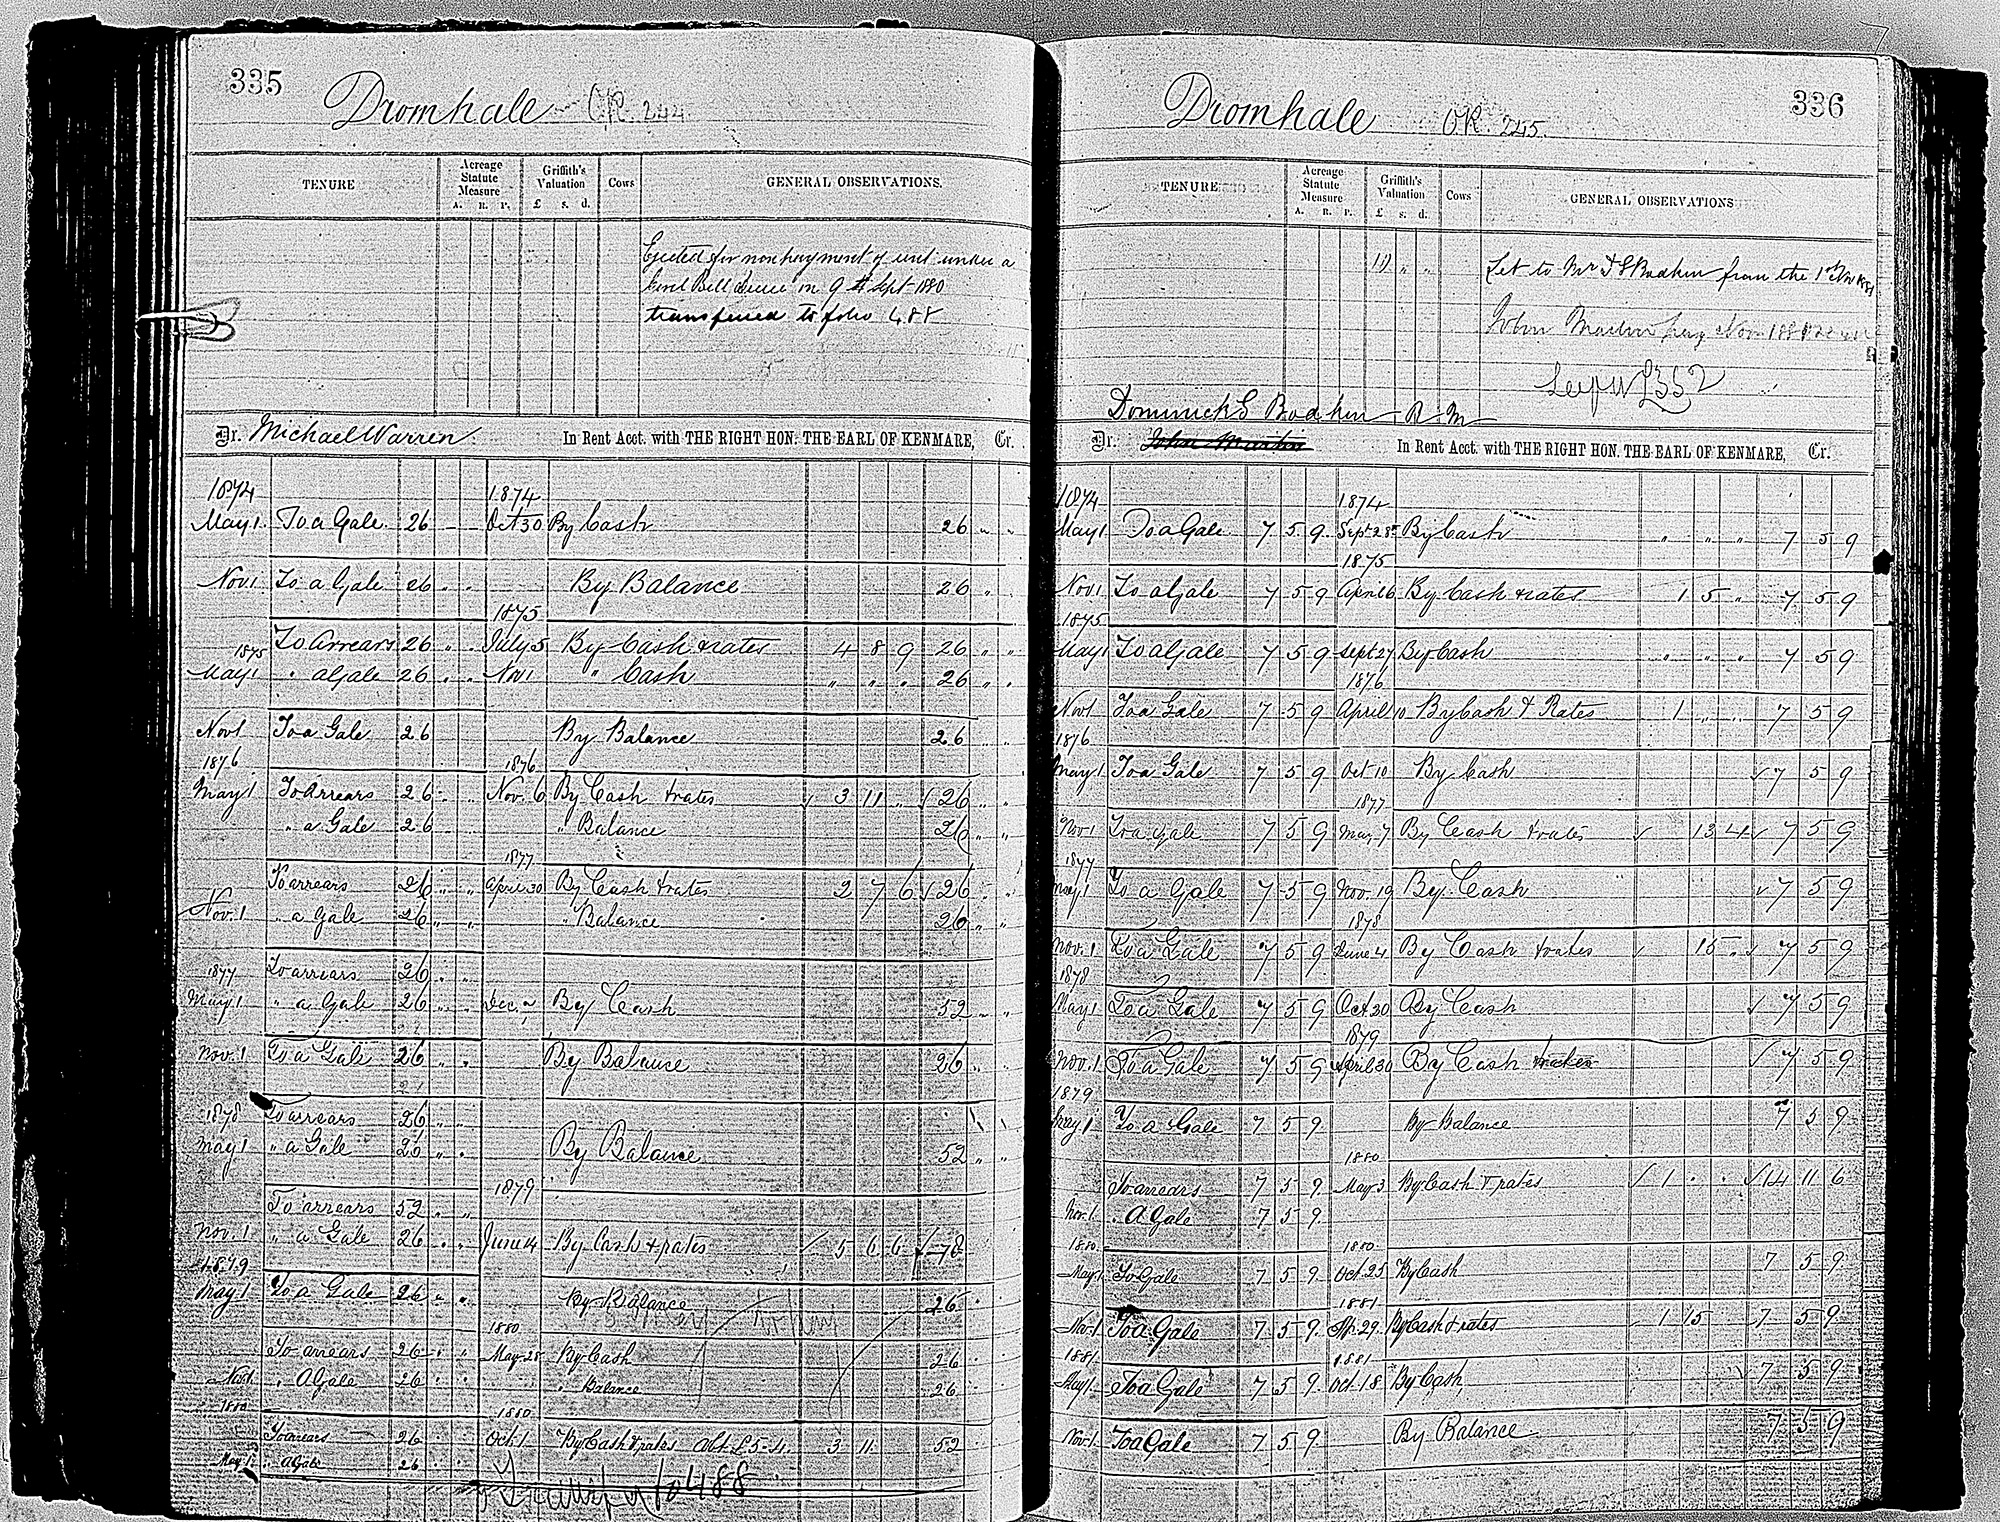 335
Dromhale OR. 244
TENURE
Acreage Statute Measure
A. R. P.
Griffith's Valuation
£ s. d.
Cows
GENERAL OBSERVATIONS.
Ejected for nonpayment of rent under a
Civil Bill Decree on 9th Sept 1880
transferred to folio 488
Dr. Michael Warren In Rent Acct. with THE RIGHT HON. THE EARL OF KENMARE, Cr.
1874 1874
May 1 To a Gale 26 Oct 30 By Cash 26 " "
Nov. 1 To a Gale 26 " " By Balance 26 "
1875
To Arrears 26 " " July 5 By Cash & rates 4 8 9 26 " "
1875
May 1 " a Gale 26 " " Nov 1 " Cash " " " 26 " "
Nov 1 To a Gale 26 By Balance 26 " "
1876 1876
May 1 To Arrears 26 " " Nov. 6 By Cash & rates 3 11 " 26 " "
" a Gale 26 " Balance 26 " "
1877
To arrears 26 " " April 30 By Cash & rates 2 7 6 26 " "
Nov. 1 " a Gale 26 " " " Balance 26 " "
1877 To arrears 26 " "
May 1 " a Gale 26 " " Dec. By Cash 52 " "
Nov. 1 To a Gale 26 " " By Balance 26 " "
1878 To arrears 26 " "
May 1 " a Gale 26 " " By Balance 52 " "
1879
To arrears 52 " "
Nov. 1 " a Gale 26 " " June 14 By Cash & rates 5 6 6 78
1879
May 1 To a Gale 26 " " By Balance 26 "
1880
To arrears 26 " " May 28 By Cash 26 "
Nov 1 " A Gale 26 " " " Balance 26 "
1880 1880
To arrears 26 Oct. 1 By Cash & rates 3 11 52
May 1 " a Gale 26 " "
Transf to 488
336
Dromhale OR. 245.
TENURE
Acreage Statute Measure
A. R. P.
Griffith's Valuation
£ s. d.
Cows
GENERAL OBSERVATIONS
Let to Mr D S Bodkin from the 1st Nov
John Martin Nov
£352
Dominick S Bodkin R. M
Dr. John Martin In Rent Acct. with THE RIGHT HON. THE EARL OF KENMARE, Cr.
1874 1874
May 1 To a Gale 7 5 9 Sept 28 By Cash " " " 7 5 9
1875
Nov 1 To a Gale 7 5 9 April 6 By Cash & rates 1 5 " 7 5 9
1875
May 1 To a Gale 7 5 9 Sept 27 By Cash " " " 7 5 9
1876
Nov 1 To a Gale 7 5 9 April 10 By Cash & Rates 1 " " 7 5 9
1876
May 1 To a Gale 7 5 9 Oct 10 By Cash 7 5 9
1877
Nov 1 To a Gale 7 5 9 Mar. 7 By Cash & rates 13 4 7 5 9
1877
May 1 To a Gale 7 5 9 Nov. 19 By Cash 7 5 9
1878
Nov. 1 To a Gale 7 5 9 June 4 By Cash & rates 15 " 7 5 9
1878
May 1 To a Gale 7 5 9 Oct. 30 By Cash 7 5 9
1879
Nov. 1 To a Gale 7 5 9 April 30 By Cash 7 5 9
1879
May 1 To a Gale 7 5 9 By Balance 7 5 9
1880
To arrears 7 5 9 May 3 By Cash & rates 1 " " 14 11 6
Nov. 1 " A Gale 7 5 9
1880 1880
May 1 To Gale 7 5 9 Oct. 25 By Cash 7 5 9
1881
Nov. 1 To a Gale 7 5 9 Ap. 29 By Cash & rates 1 15 7 5 9
1881 1881
May 1 To a Gale 7 5 9 Oct. 18 By Cash 7 5 9
Nov. 1 To a Gale 7 5 9 By Balance 7 5 9